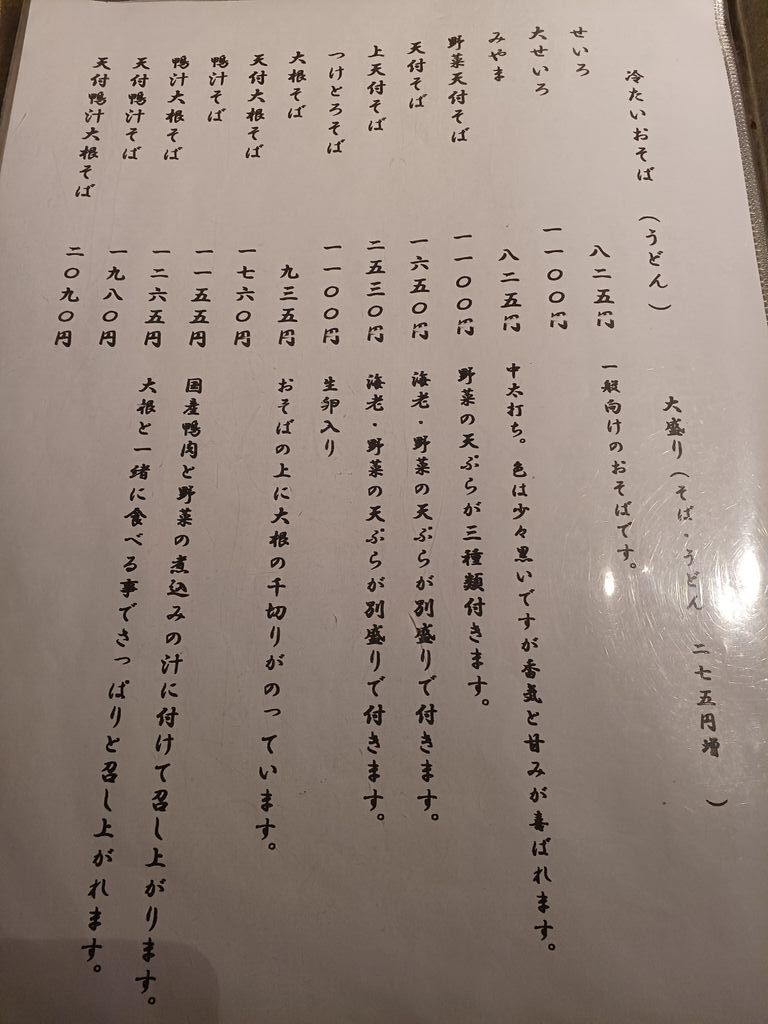 冷たいおそば (うどん) 大盛り(そば・うどん 二七五円増 )
せいろ 八二五円 一般向けのおそばです。
大せいろ 一一〇〇円
みやま 八二五円 中太打ち。色は少々黒いですが香気と甘みが喜ばれます。
野菜天付そば 一一〇〇円 野菜の天ぷらが三種類付きます。
天付そば 一六五〇円 海老・野菜の天ぷらが別盛りで付きます。
上天付そば 二五三〇円 海老・野菜の天ぷらが別盛りで付きます。
つけとろそば 一一〇〇円 生卵入り
大根そば 九三五円 おそばの上に大根の千切りがのっています。
天付大根そば 一七六〇円
鴨汁そば 一一五五円 国産鴨肉と野菜の煮込みの汁に付けて召し上がります。
鴨汁大根そば 一二六五円 大根と一緒に食べる事でさっぱりと召し上がれます。
天付鴨汁そば 一九八〇円
天付鴨汁大根そば 二〇九〇円